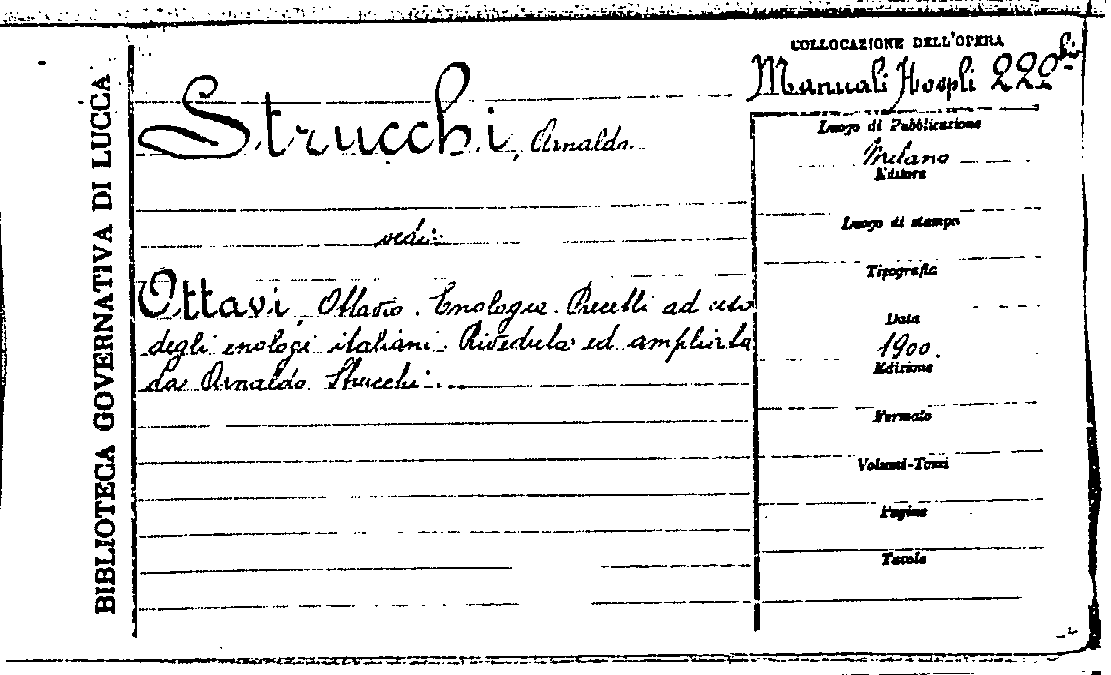 BIBLIOTECA GOVERNATIVA DI LUCCA
COLLOCAZIONE DELL'OPERA
Manuali Hoepli 220 bis
Strucchi, Arnaldo.
vedi:
Ottavi, Ottavio. Enologia. Precetti ad uso
degli enologi italiani. Riveduta ed ampliata
da Arnaldo Strucchi...
Luogo di Pubblicazione
Milano
Editore
Luogo di stampa
Tipografia
Data
1900.
Edizione
Formato
Volumi-Tomi
Pagine
Tavole